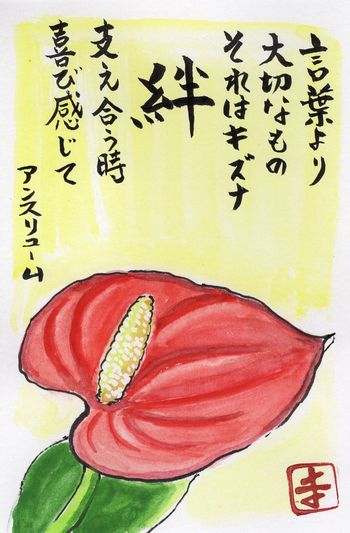 言葉より
大切なもの
それはキズナ
絆
支え合う時
喜び感じて
アンスリューム
寺